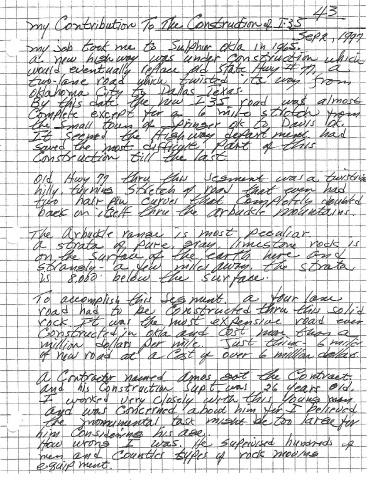 43
My Contribution To The Construction of I-35
Sept, 1997
My job took me to Sulphur Okla in 1965.
A new highway was under construction which
would eventually replace old state Hwy # 77, a
two-lane road which twisted its way from
Oklahoma City to Dallas Texas.
By this date the new I 35 road was almost
complete except for a 6 mile stretch from
the small town of Springer, ok to Davis ok.
It seemed the Highway department had
saved the most difficult part of this
construction till the last.
Old Hwy 77 thru this segment was a twisting
hilly, turning stretch of road that even had
two hair pin curves that completely doubled
back on itself thru the arbuckle mountains.
The Arbuckle range is most peculiar.
a strata of pure, gray, limestone rock is
on the surface of the earth here and
strangely - a few miles away, the strata
is 8,000' below the surface.
To accomplish this segment, a four lane
road had to be constructed thru this solid
rock. It was the most expensive road ever
constructed in okla and cost more than a
million dollars per mile. Just think - 6 miles
of new road at a cost of over 6 million dollars.
A Contractor named Amos got the Contract
and his Construction Supt. was 26 years old.
I worked very closely with this young man
and was concerned about him for I believed
the monumental task might be too large for
him considering his age.
How wrong I was. He supervised hundreds of
men and countless types of rock moving
equipment.